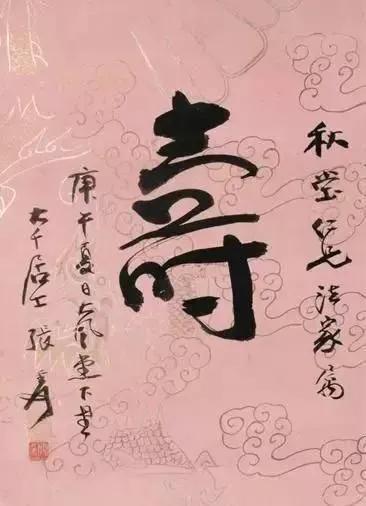 秋仁兄法家屬
壽
庚午夏日大風堂下書
大千居士張爰